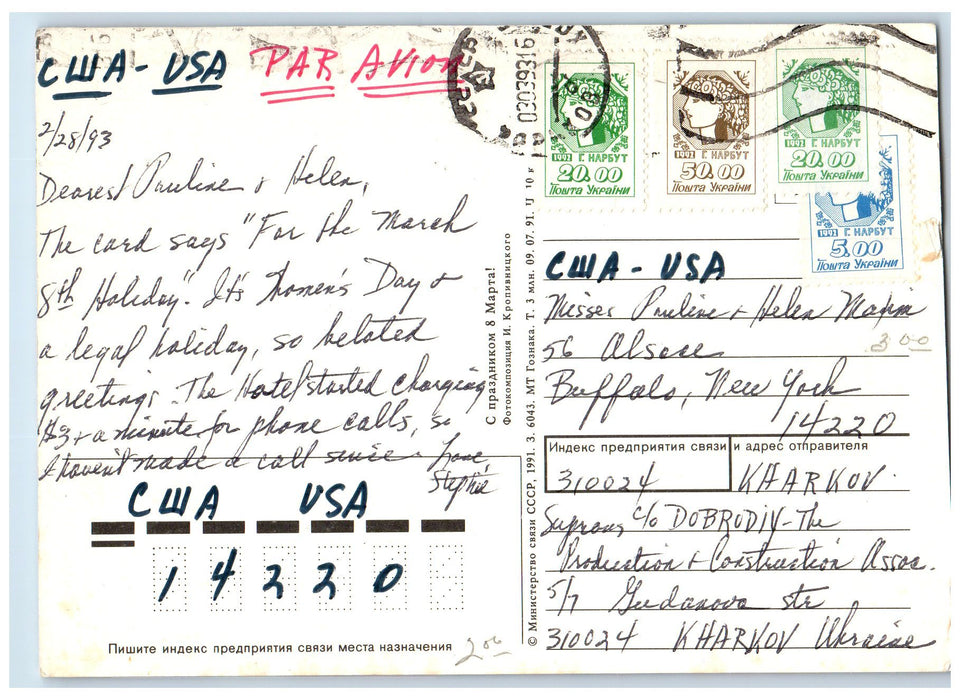 США - USA PAR AVION
2/28/93
Dearest Pauline & Helen,
The card says "For the March
8th Holiday". It's Women's Day &
a legal holiday, so belated
greetings. The Hotel started charging
$3+ a minute for phone calls, so
I haven't made a call since. Love
Stephie
США USA
14220
Пишите индекс предприятия связи места назначения
2 00
С праздником 8 Марта!
Фотокомпозиция И. Кропивницкого
© Министерство связи СССР, 1991. З. 6043. МТ Гознака. Т. 3 млн. 09. 07. 91. Ц 10 к
03039316
1992 Г. НАРБУТ
20.00
Пошта України
1992 Г. НАРБУТ
50.00
Пошта України
1992 Г. НАРБУТ
20.00
Пошта України
1992 Г. НАРБУТ
5.00
Пошта України
США - USA
Misses Pauline & Helen
56 Alsace
3 00
Buffalo, New York
14220
Индекс предприятия связи и адрес отправителя
310024 KHARKOV
c/o DOBRODIY - The
Production & Construction Assoc.
5/7 Gudanova str
310024 KHARKOV Ukraine